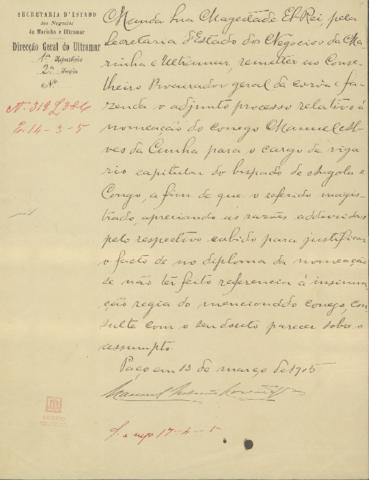 SECRETARIA D'ESTADO
dos Negocios
da Marinha e Ultramar
Direcção Geral do Ultramar
1ª Repartição
2ª Secção
Nº
Nº 319 L 38-G
E. 14-3-5
Manda Sua Magestade El-Rei, pela
Secretaria d'Estado dos Negocios da Ma-
rinha e Ultramar, remetter ao Conse-
lheiro Procurador geral da corôa e fa-
zenda o adjunto processo relativo á
nomeação do conego Manuel Al-
ves da Cunha para o cargo de viga-
rio capitular do bispado de Angola e
Congo, a fim de que o referido magis-
trado, apreciando as razões adduzidas
pelo respectivo cabido para justificar
o facto de no diploma da nomeação
se não ter feito referencia á insinua-
ção regia do mencionado conego, con-
sulte com o seu douto parecer sobre o
assumpto.
Paço em 13 de março de 1905
Manuel
17-4-5